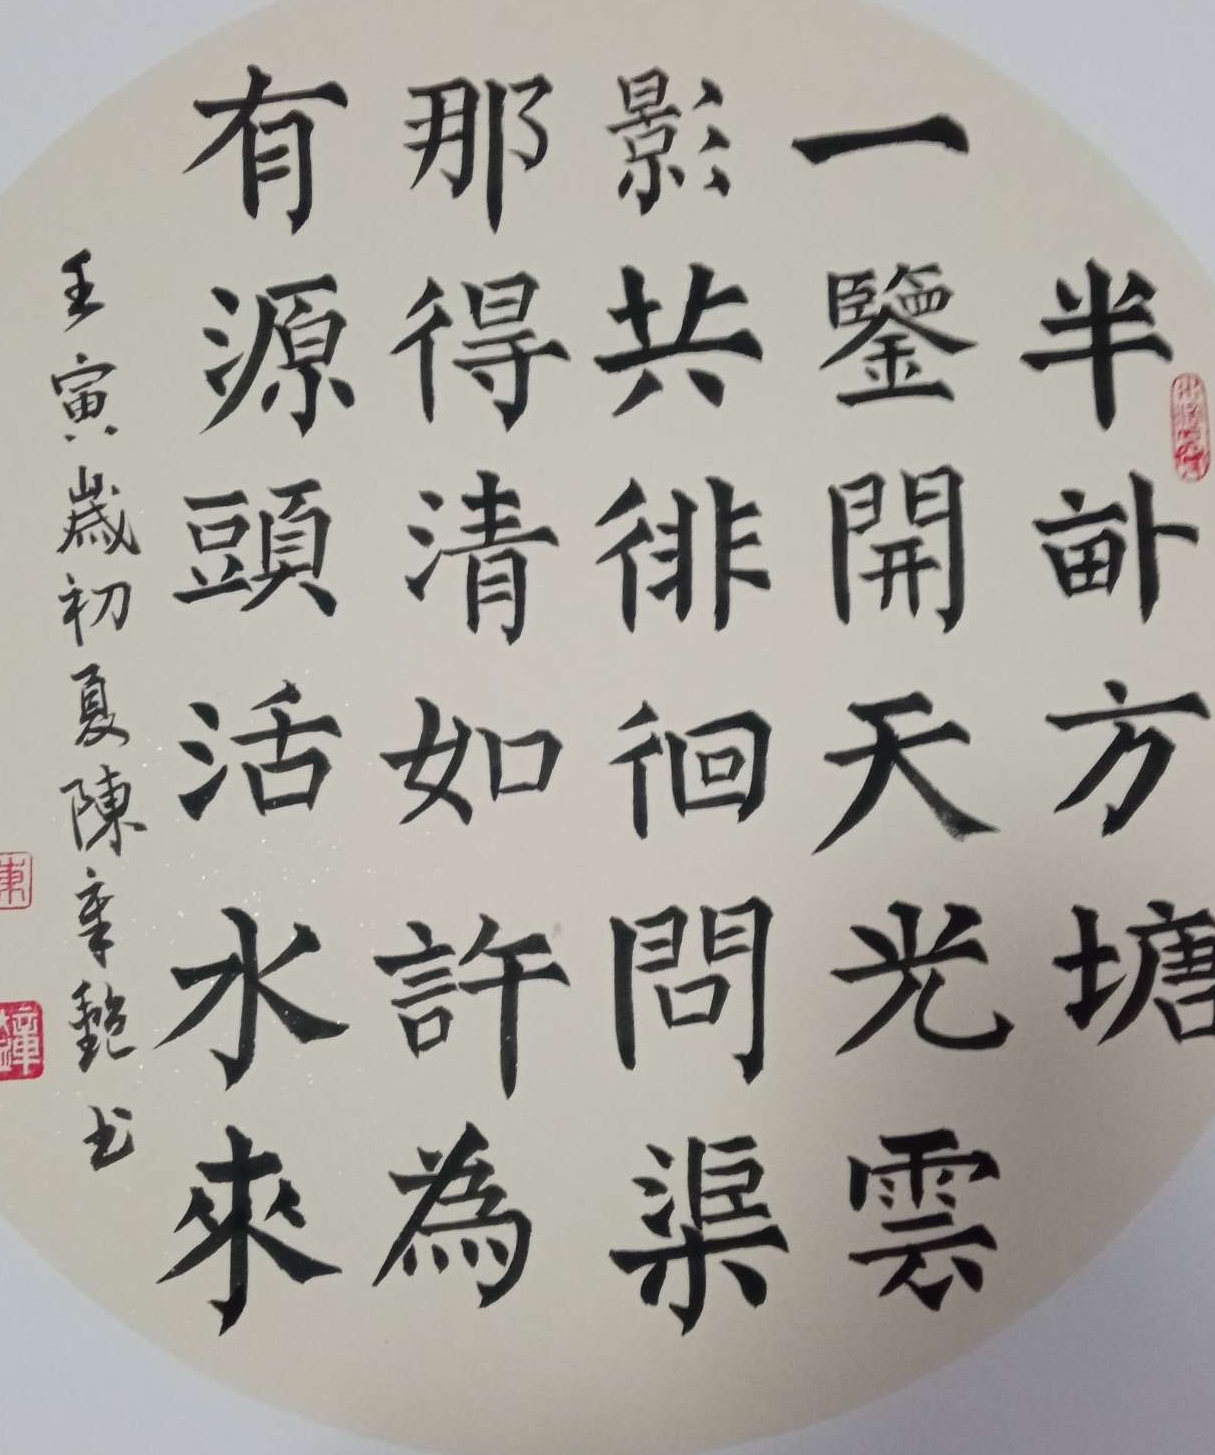 半畝方塘
一鑒開天光雲
影共徘徊問渠
那得清如許為
有源頭活水來
壬寅歲初夏陳章艷书